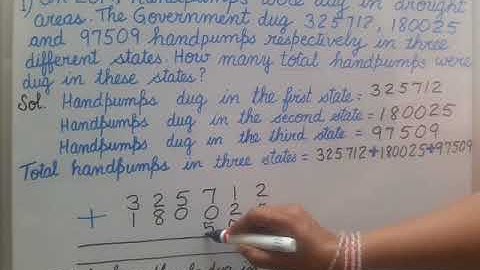 1) In 2017, handpumps were dug in drought
areas. The Government dug 325712, 180025
and 97509 handpumps respectively in three
different states. How many total handpumps were
dug in these states?
Sol. Handpumps dug in the first state = 325712
Handpumps dug in the second state = 180025
Handpumps dug in the third state = 97509
Total handpumps in three states = 325712+180025+97509
3 2 5 7 1 2
+ 1 8 0 0 2